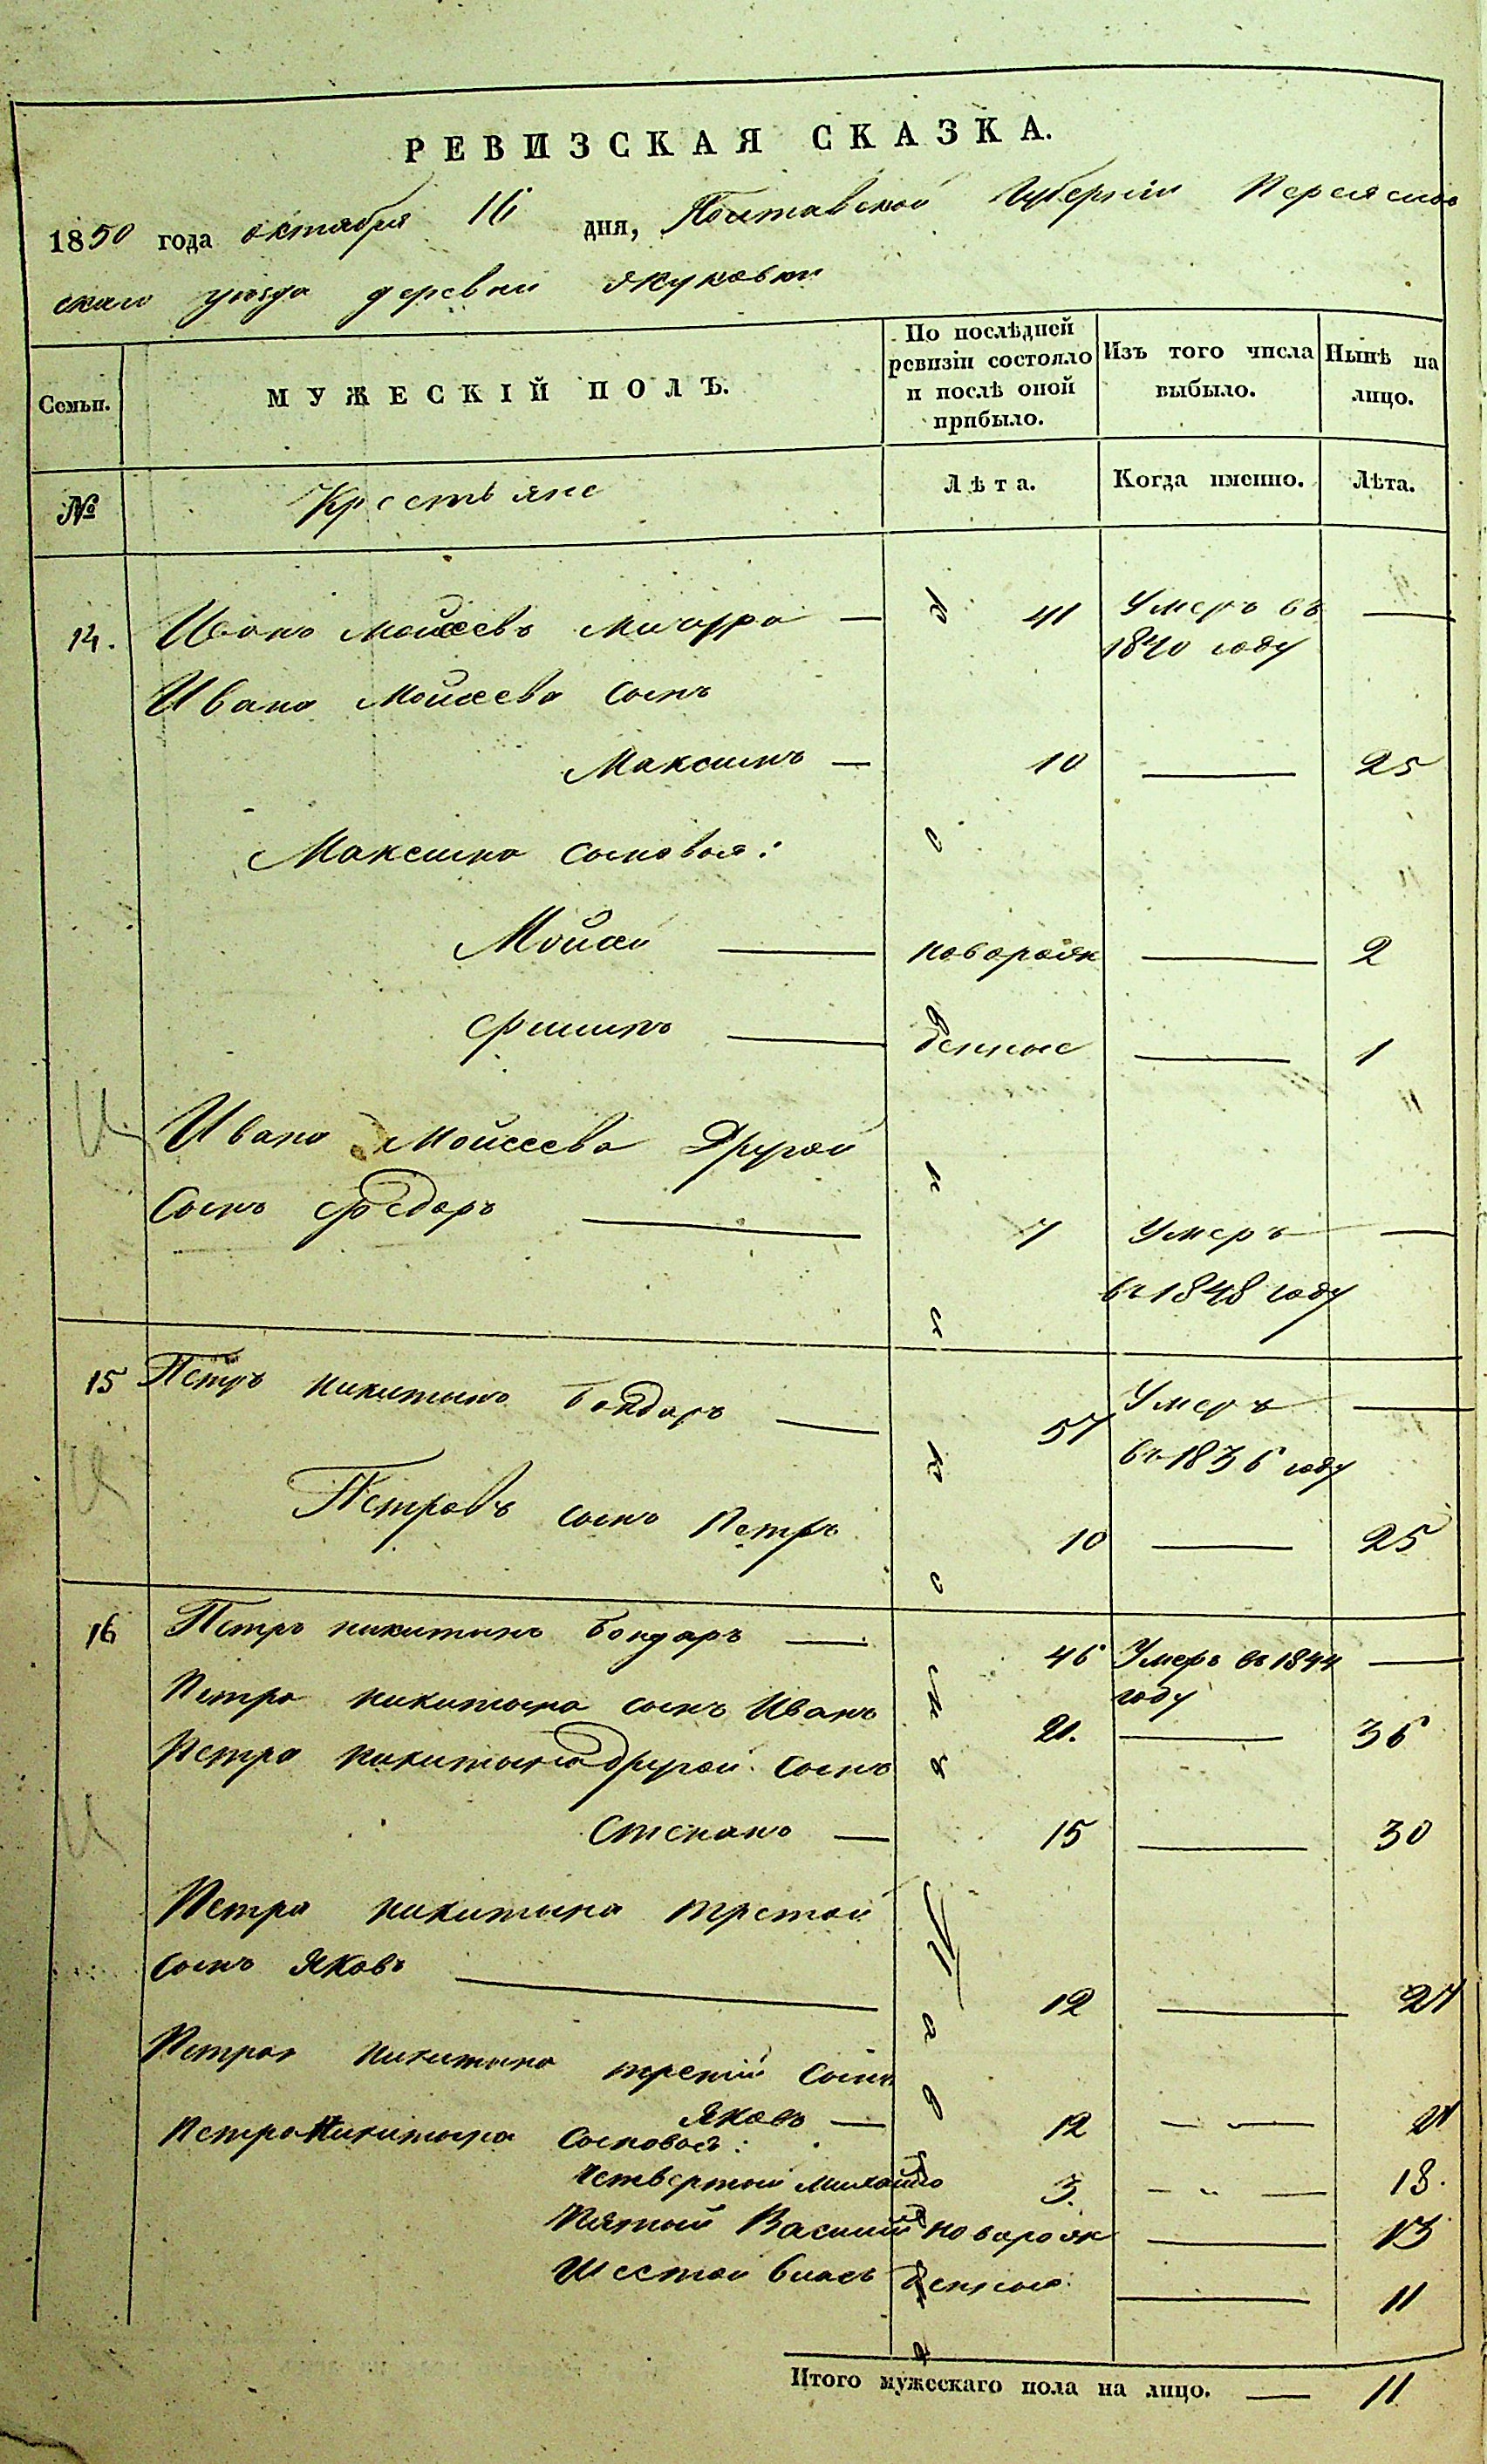 РЕВИЗСКАЯ СКАЗКА.
1850 года октября 16 дня, Полтавской Губернии Переяслов
скаго уезда деревни Якуковки
Семьи. МУЖЕСКІЙ ПОЛЪ. По послѣдней ревизіи состояло и послѣ оной прибыло. Изъ того числа выбыло. Нынѣ на лицо.
№ Крестьяне Лѣта. Когда именно. Лѣта.
14. Иванъ Моисеевъ — 41 Умеръ въ —
1840 году
Ивана Моисеева сынъ
Максимъ — 10 — 25
Максима сыновья:
Мойсей — новорож — 2
Филипъ — денные — 1
Ивана Моисеева Другой
сынъ Федоръ — 7 Умеръ —
въ 1848 году
15 Петръ Никитинъ Бондарь — 57 Умеръ —
въ 1836 году
Петровъ сынъ Петръ 10 — 25
16 Петръ Никитинъ Бондарь — 46 Умеръ въ 1844 —
году
Петра Никитина сынъ Иванъ 21. — 36
Петра Никитина другой сынъ
Степанъ — 15 — 30
Петра Никитина третой
сынъ Яковъ — 12 — 27
Петра Никитина третій сынъ
Яковъ — 12 — „ — 27
Петра Никитина сыновья:
Четвертый Михайло 3. — „ — 18.
Пятый Василий новорож — 13
Шестой Власъ денные — 11
Итого мужескаго пола на лицо. — 11